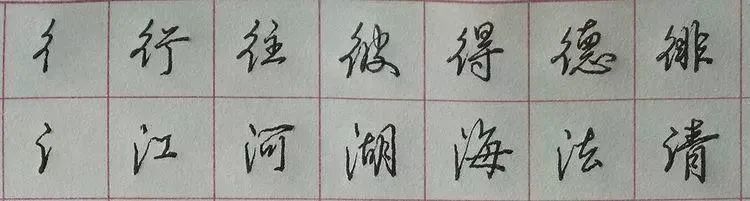 彳行往彼得德徘
氵江河湖海法清